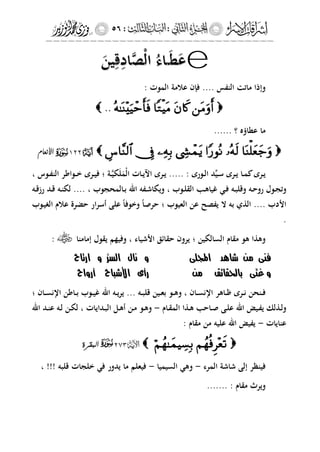 إشراقات الأسرار : الجزء الثاني : الباب الثالث : ٥٦ نورى عزيز
عَطَاءُ الصَّادِقِينَ
وإذا ماتت النفس .... فإن علامة الموت :
﴿ أَوَمَن كَانَ مَيْتًا فَأَحْيَيْنَاهُ .. ﴾
ما عطاؤه ؟ ......
﴿ وَجَعَلْنَا لَهُ نُورًا يَمْشِي بِهِ فِي النَّاسِ ﴾ ١٢٢ الأنعام
يرى كما يرى سيِّد الورى : ..... يرى الآيات المَلَكيَّة ؛ فيرى خواطر النفوس ،
وتجول روحه وقلبه في غياهب القلوب ، ويكاشفه الله بالمحجوب ، لكنه قد رزقه
الأدب .... الذي به لا يفصح عن العيوب ؛ حرصاً وخوفاً على أسرار حضرة علام الغيوب
.
وهذا هو مقام السالكين ؛ يرون حقائق الأشياء ، وفيهم يقول إمامنا :
فتى من شاهد المجلى و نال السر و ارتاح
و فتى بالحقائق من رأى الأشباح أرواح
فنحن نرى ظاهر الإنسان ، وهو بعين قلبه ... يريه الله غيوب باطن الإنسان ؛
ولذلك يفيض الله على صاحب هذا المقام – وهو من أهل البدايات ، لكن له عند الله
عنايات – يفيض الله عليه من مقام :
﴿ تَعْرِفُهُم بِسِيمَاهُمْ ﴾ ٢٧٣ البقرة
فينظر إلى شاشة المرء – وهي السيميا – فيعلم ما يدور في خلجات قلبه !!! ،
ويرث مقام : .......